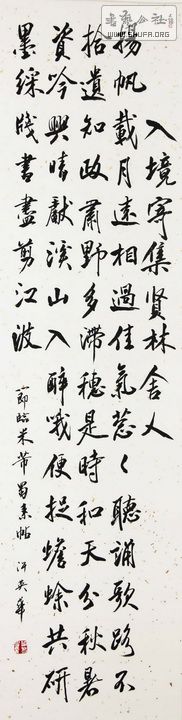 書法公社
WWW.SHUFA.ORG
入境寄集賢林舍人
揚帆載月遠相過佳氣葱〻聽誦歌路不
拾遺知政肅野多滯穗是時和天分秋暑
資吟興晴獻溪山入醉哦便捉蟾蜍共研
墨綵牋書盡剪江波
節臨米芾蜀素帖